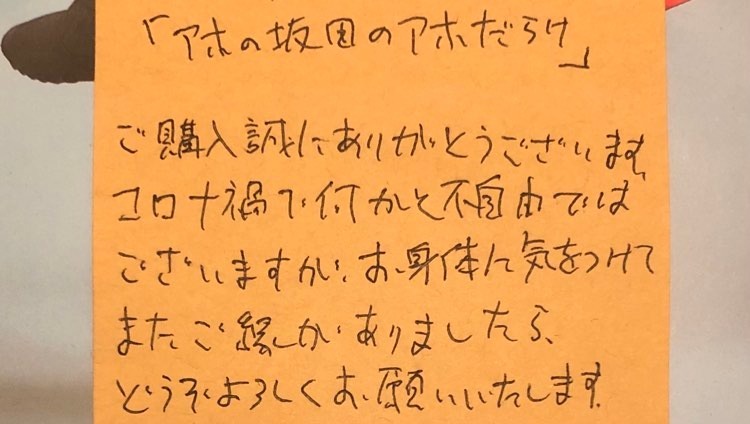 「アホの坂田のアホだらけ」
ご購入誠にありがとうございます。
コロナ禍で何かと不自由では
ございますが、お身体に気をつけて
またご縁がありましたら、
どうぞよろしくお願いいたします。